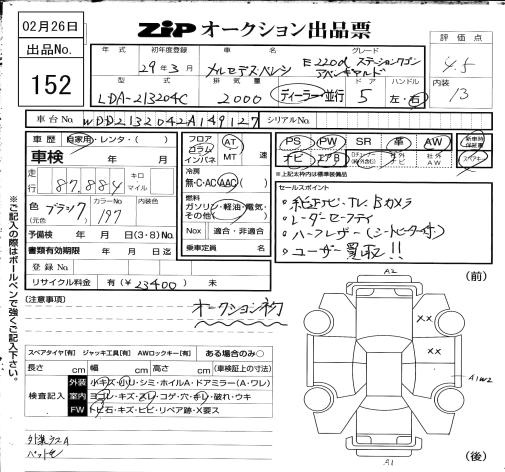 02月26日
ZiP オークション出品票
出品No.
152
評価点
4.5
内装
13
年式 初年度登録 車名 グレード
29年3月 メルセデスベンツ E220d ステーションワゴン
アバンギャルド
型式 排気量 ドア ハンドル
LDA-213204C 2000 ディーラー・並行 5 左・右
車台No. WDD2132042A149127 シリアルNo.
車歴 自家用・レンタ・( )
車検 年 月
走行 87,884 キロ マイル
色 (元色) ブラック カラーNo. 197 内装色
予備検 年 月 日(3・8)No.
書類有効期限 年 月 日迄
登録No.
リサイクル料金 有(¥23400) 未
フロア コラム インパネ AT MT 速
冷房 無・C・AC・AAC
燃料 ガソリン・軽油・電気・その他( )
Nox 適合・非適合
乗車定員 名
PS PW SR 革 AW 新車時保証書
ナビ エアB 社外ナビ 社外AW スペアキー
※上記太枠内は標準装備品
セールスポイント
○純正ナビ・TV Bカメラ
○レーダーセーフティ
○ハーフレザー(シートヒーター付)
○ユーザー買取!!
(注意事項)
オークション初
スペアタイヤ【有】 ジャッキ工具【有】 AWロックキー【有】 ある場合のみ○
長さ cm 幅 cm 高さ cm (車検証上の寸法)
検査記入
外装 小キズ・小凹・シミ・ホイルA・ドアミラー(A・ワレ)
室内 ヨゴレ・キズ・スレ・コゲ・穴・キレ・破れ・ウキ
FW トビ石・キズ・ヒビ・リペア跡・X要ス
外装ラスA
(前)
A2
XX
XX
A1W2
A1
(後)
※ご記入の際はボールペンで強くご記入下さい。